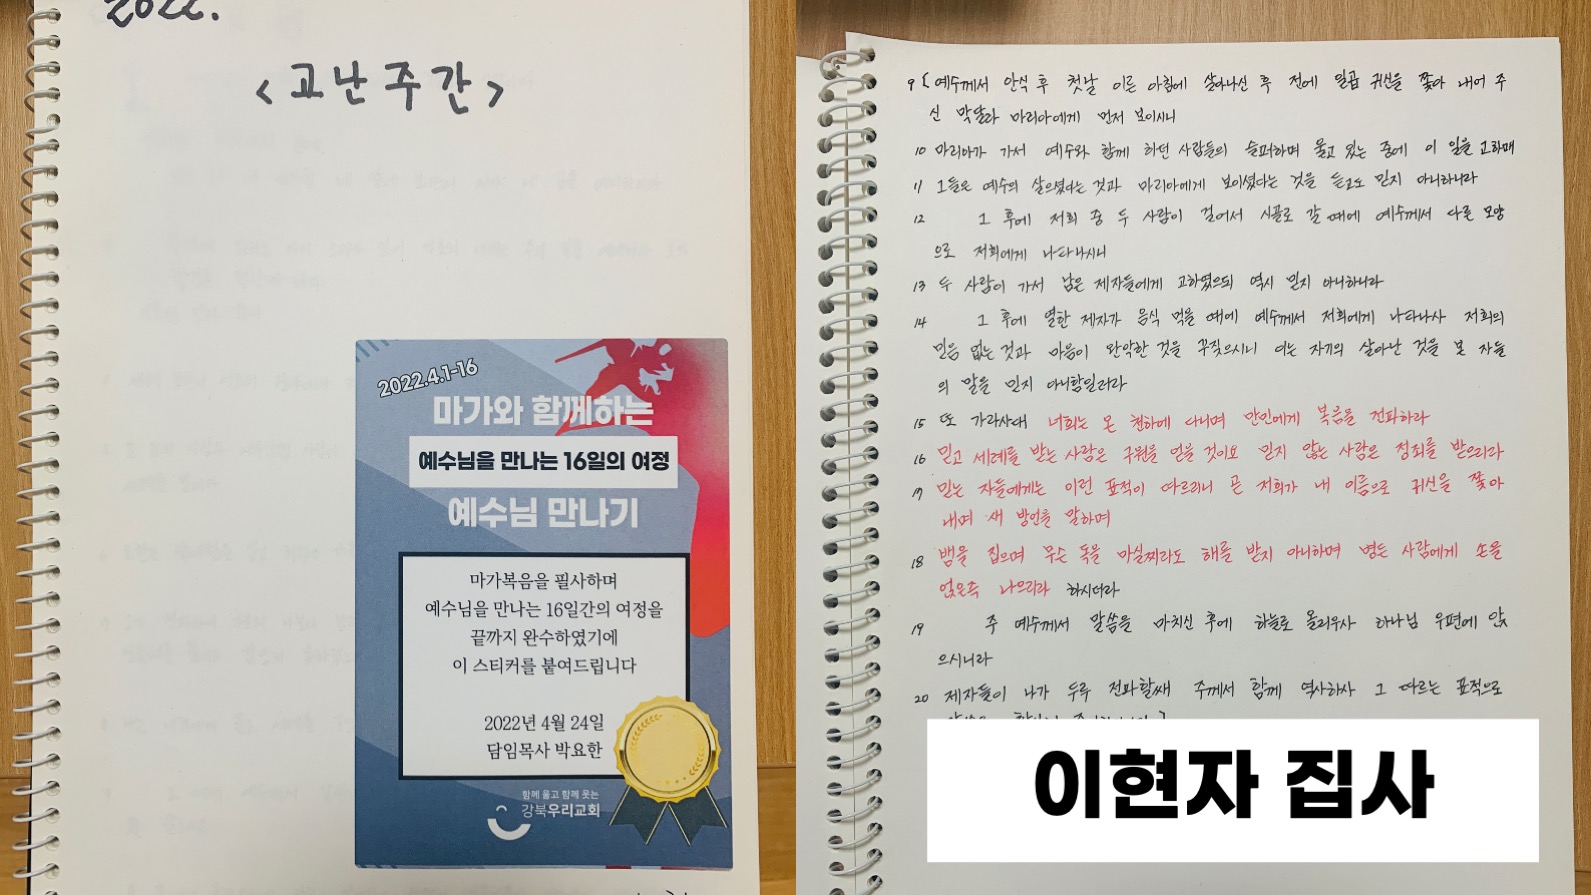 2022.
<고난주간>
2022.4.1-16
마가와 함께하는
예수님을 만나는 16일의 여정
예수님 만나기
마가복음을 필사하며
예수님을 만나는 16일간의 여정을
끝까지 완수하였기에
이 스티커를 붙여드립니다
2022년 4월 24일
담임목사 박요한
함께 울고 함께 웃는
강북우리교회
9 [예수께서 안식 후 첫날 이른 아침에 살아나신 후 전에 일곱 귀신을 쫓아 내어 주
신 막달라 마리아에게 먼저 보이시니
10 마리아가 가서 예수와 함께 하던 사람들의 슬퍼하며 울고 있는 중에 이 일을 고하매
11 그들은 예수의 살으셨다는 것과 마리아에게 보이셨다는 것을 듣고도 믿지 아니하니라
12 그 후에 저희 중 두 사람이 걸어서 시골로 갈 때에 예수께서 다른 모양
으로 저희에게 나타나시니
13 두 사람이 가서 남은 제자들에게 고하였으되 역시 믿지 아니하니라
14 그 후에 열한 제자가 음식 먹을 때에 예수께서 저희에게 나타나사 저희의
믿음 없는 것과 마음이 완악한 것을 꾸짖으시니 이는 자기의 살아난 것을 본 자들
의 말을 믿지 아니함일러라
15 또 가라사대 너희는 온 천하에 다니며 만민에게 복음을 전파하라
16 믿고 세례를 받는 사람은 구원을 얻을 것이오 믿지 않는 사람은 정죄를 받으리라
17 믿는 자들에게는 이런 표적이 따르리니 곧 저희가 내 이름으로 귀신을 쫓아
내며 새 방언을 말하며
18 뱀을 집으며 무슨 독을 마실찌라도 해를 받지 아니하며 병든 사람에게 손을
얹은즉 나으리라 하시더라
19 주 예수께서 말씀을 마치신 후에 하늘로 올리우사 하나님 우편에 앉
으시니라
20 제자들이 나가 두루 전파할쌔 주께서 함께 역사하사 그 따르는 표적으로
이현자 집사